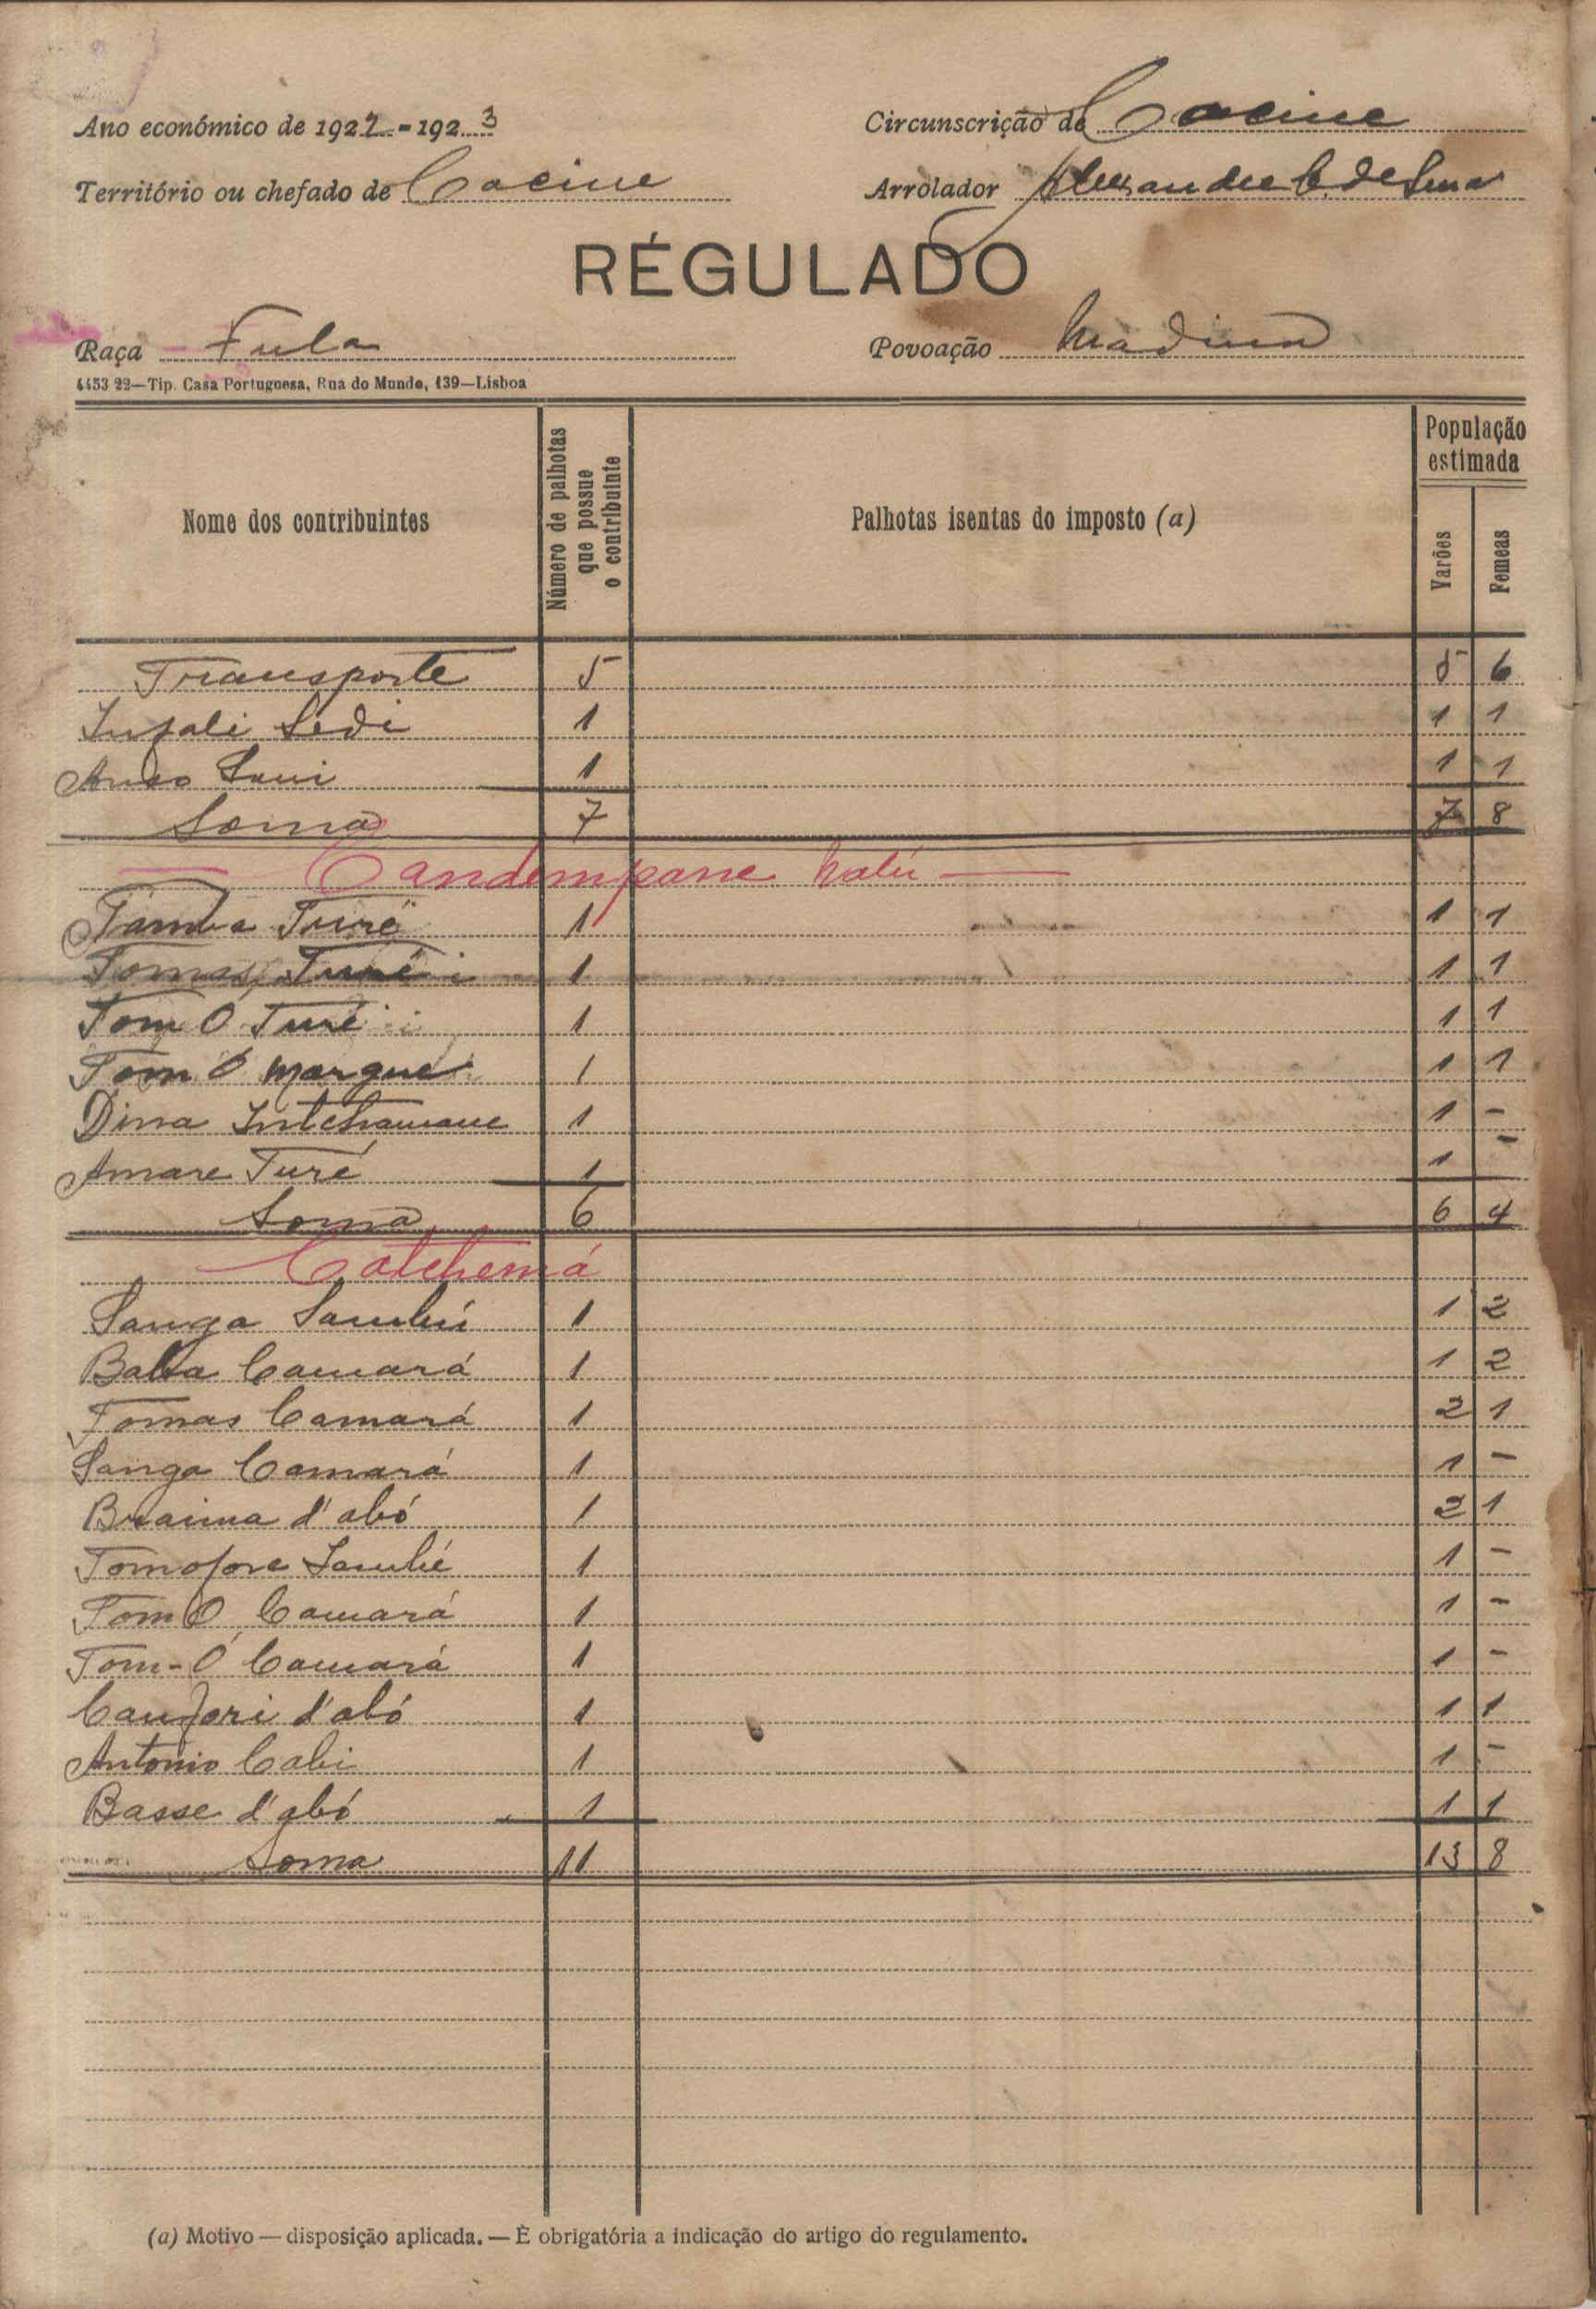 Ano económico de 1922-1923
Circunscrição de Cacine
Território ou chefado de Cacine
Arrolador Alexandre C. de Sena
RÉGULADO
Raça Fula
Povoação Madina
4453 22—Tip. Casa Portuguesa, Rua do Mundo, 139—Lisboa
Nome dos contribuintes
Número de palhotas que possue o contribuinte
Palhotas isentas do imposto (a)
População estimada
Varões
Femeas
Transporte 5 5 6
Sedi 1 1 1
1 1 1
Soma 7 7 8
Candempane Nalú
Tamba Turé 1 1 1
Tomas Turé 1 1 1
Tom Ó Turé 1 1 1
Tom Ó Margue 1 1 1
Dina Intchamane 1 1 -
Amare Turé 1 1 -
Soma 6 6 4
Catchemá
Sanga Sambú 1 1 2
Baba Camará 1 1 2
Tomas Camará 1 2 1
Sanga Camará 1 1 -
Braima d'abó 1 2 1
Tomofore 1 1 -
Tom Ó Camará 1 1 -
Tom-Ó Camará 1 1 -
Canfori d'abó 1 1 1
Antonio Cabi 1 1 -
Basse d'abó 1 1 1
Soma 11 13 8
(a) Motivo — disposição aplicada. — É obrigatória a indicação do artigo do regulamento.